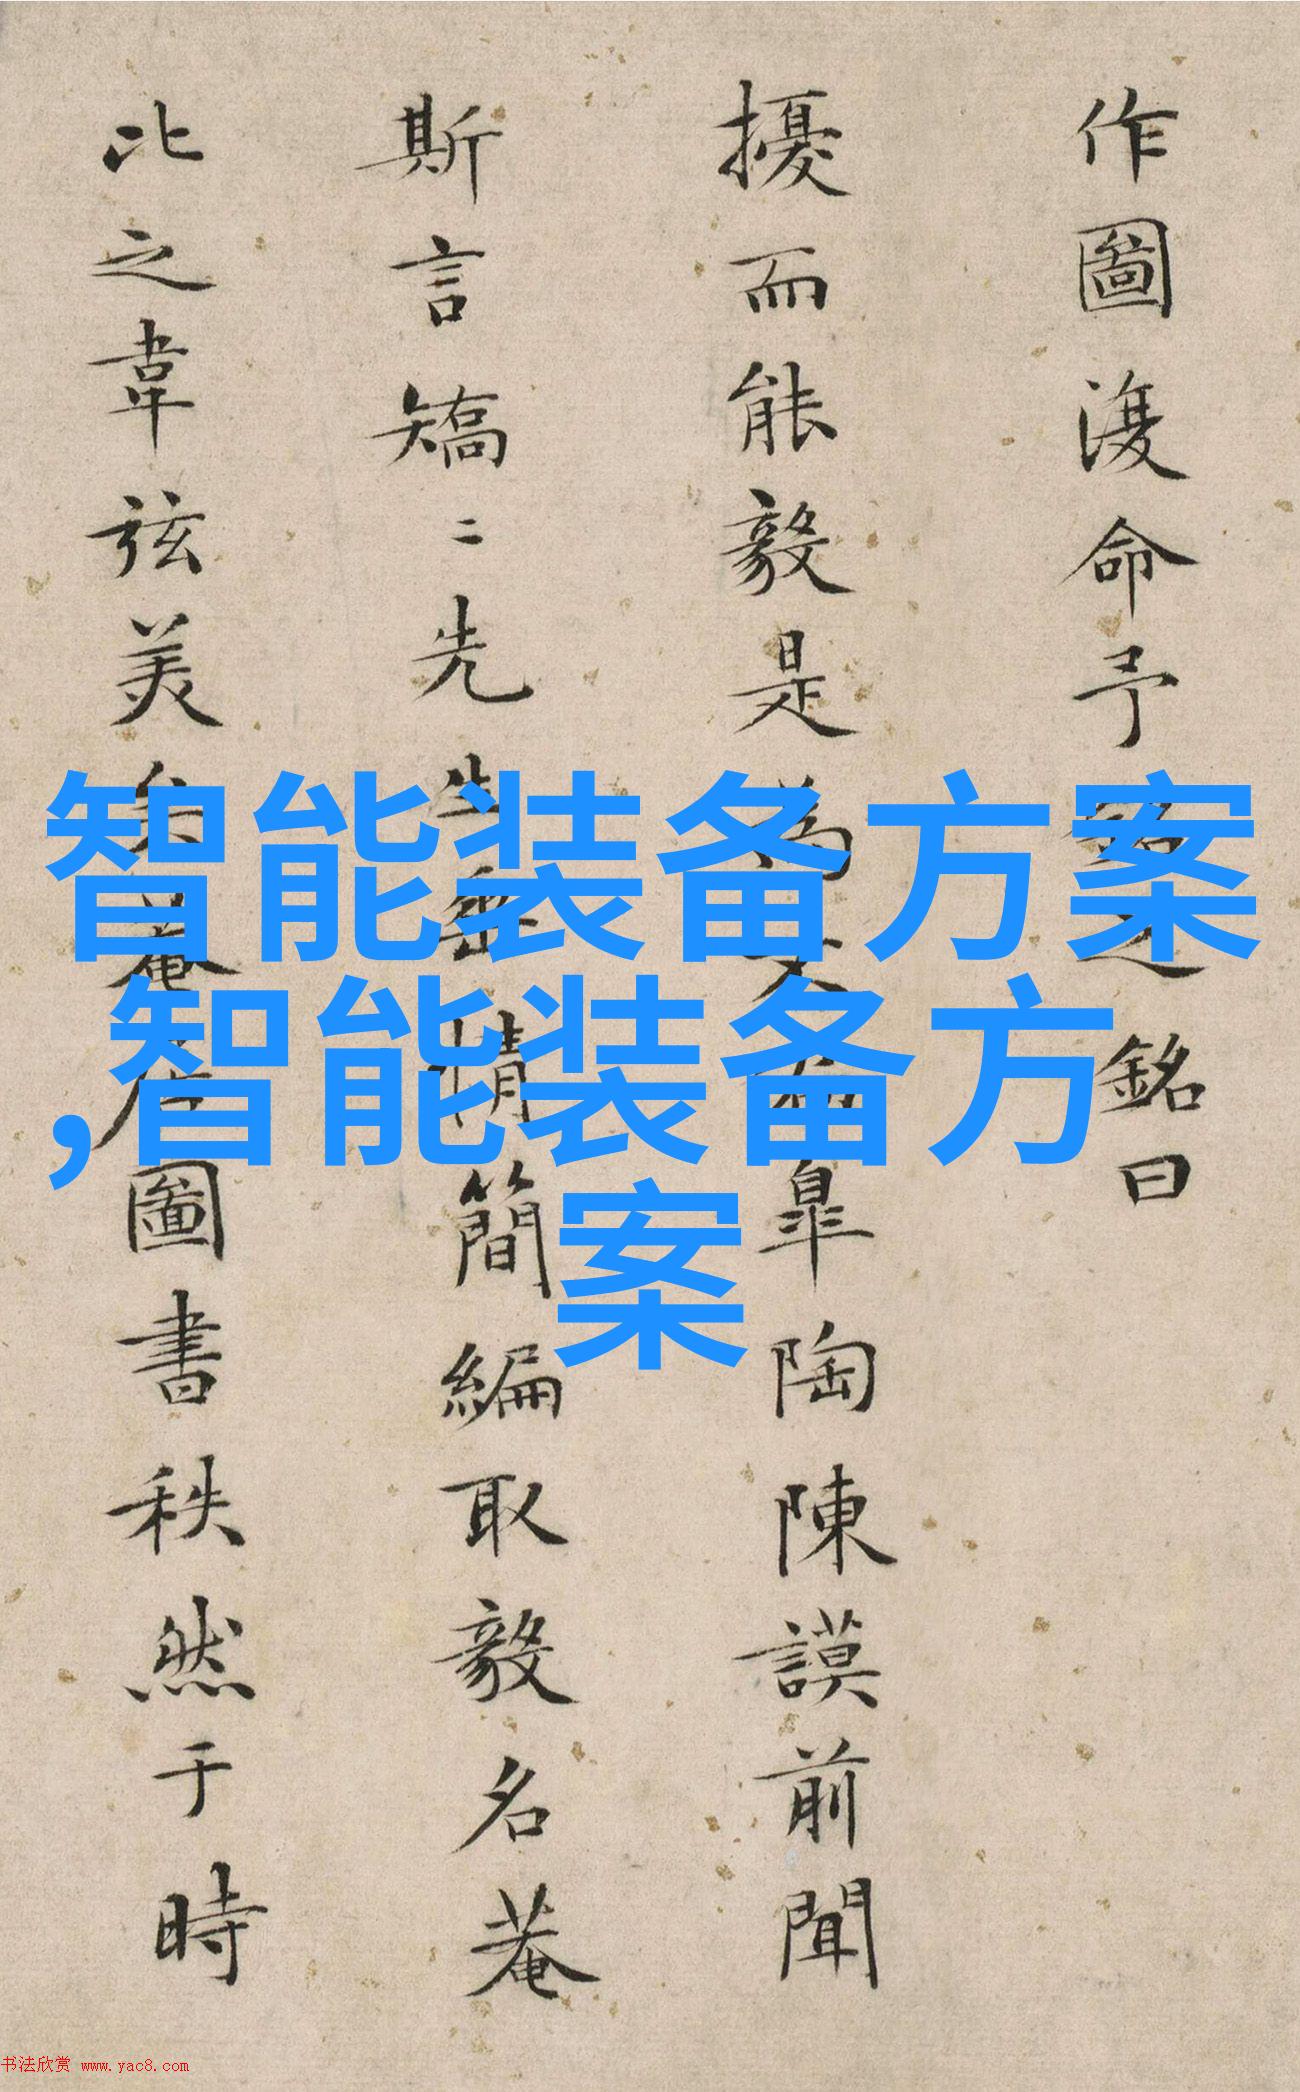 作圖復命予之銘曰
擾而能毅是為大皐陶陳謨前聞
斯言矯二先生垂情簡編取毅名菴
比之韋弦美矣菴居圖書秩然于時
智能装备方案
,智能装备方
案
书法欣赏 www.yac8.com